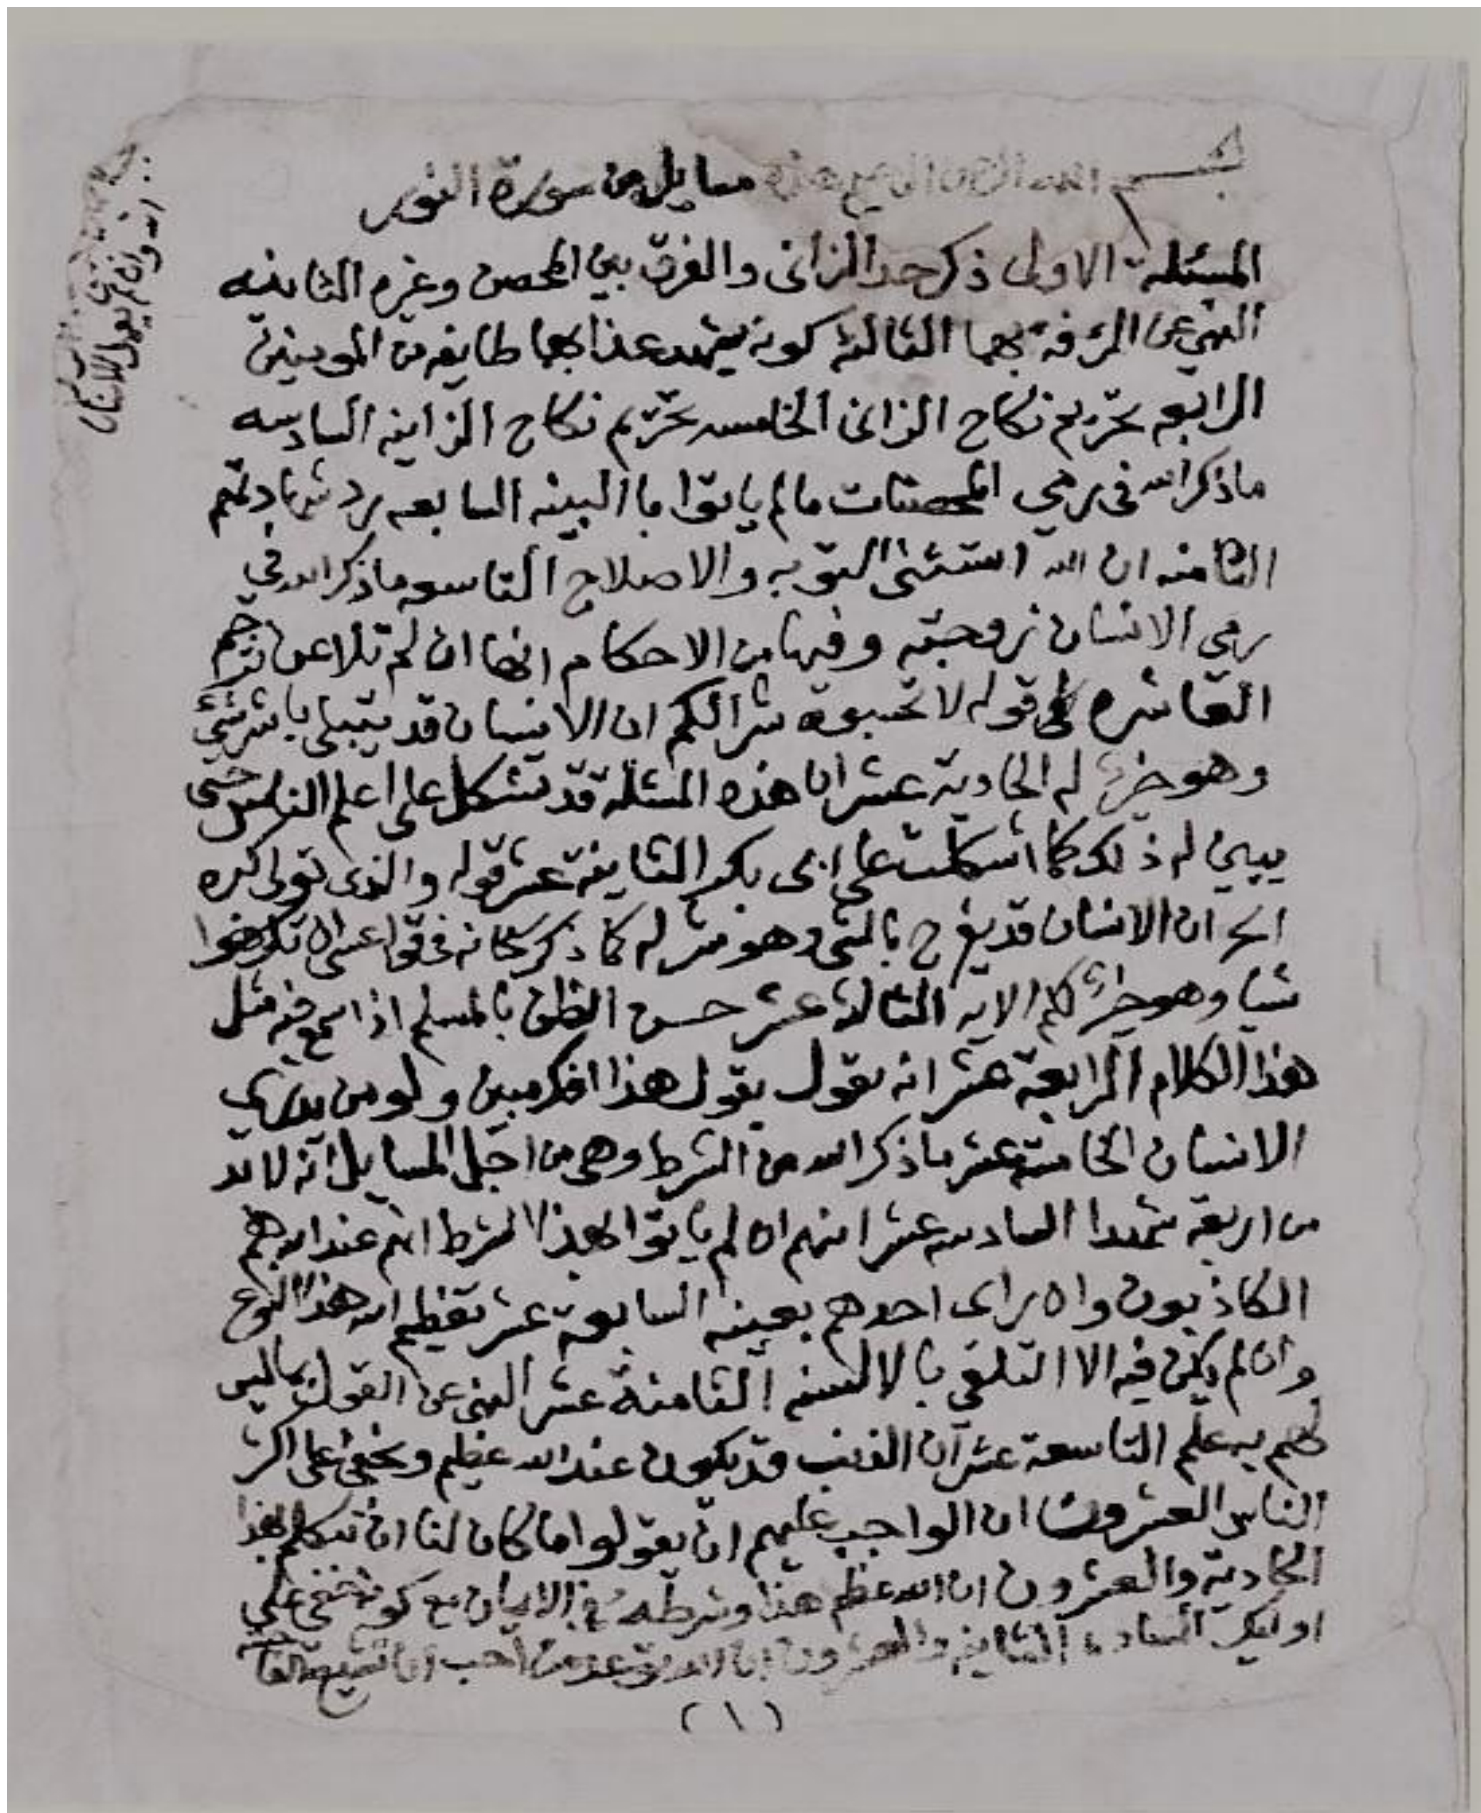 بسم الله الرحمن الرحيم مسايل من سورة النور
المسئلة الاولى ذكر حد الزانى والفرق بين المحصن وغيره الثانيه
النهي عن الرٔفة بهما الثالثة كونه يشهد عذابهما طايفه من المومينين
الرابعه تحريم نكاح الزانى الخامسه تحريم نكاح الزاينه السادسه
ما ذكر الله فى رمي المحصنات ما لم ياتوا باالبينه السابعه رد شهادتهم
الثامنه ان الله استثنى التوبه والاصلاح التاسعه ما ذكر الله في
رمي الانسان زوجته وفيها من الاحكام انها ان لم تلاعن ترجم
العاشره قوله لا تحسبوه شرا لكم ان الانسان قد يبتلى باشر شيء
وهو خير له الحادية عشر ان هذه المسئلة قد تشكل على اعلم الناس حتى
يبين له ذلك كما اشكلت على ابى بكر الثاينة عشر قوله والذى تولى كبره
الخ ان الانسان قد يفرح بالشى وهو شر له كما ذكر سبحانه فى قوله عسى ان تكرهوا
شيا وهو خير لكم الايه الثالثة عشر حسن الظن بالمسلم اذا سمع فيه مثل
هذا الكلام الرابعة عشر انه يقول يقول هذا افك مبين ولو من يدري
الانسان الخامسة عشر ما ذكر الله من الشرط وهي من اجل المسايل انه لا بد
من اربعة شهدا السادسه عشر انهم ان لم ياتوا بهذا الشرط انهم عند الله هم
الكاذبون وان راى احدهم بعينه السابعة عشر تعظيم الله هذا النوع
وان لم يكن فيه الا التلقي بالالسنه الثامنة عشر النهى عن القول بما ليس
لهم به علم التاسعة عشر ان الذنب قد يكون عند الله عظيم ويخفى على اكثر
الناس العشرون ان الواجب عليهم ان يقولوا ما كان لنا ان نتكلم بهذا
الحادية والعشرون ان الله عظم هذا وشرطه في الايمان مع كونه خفى على
اوليك الساده الثاينه والعشرون ان الله توعد من احب ان تشيع الفاحشة
(١)